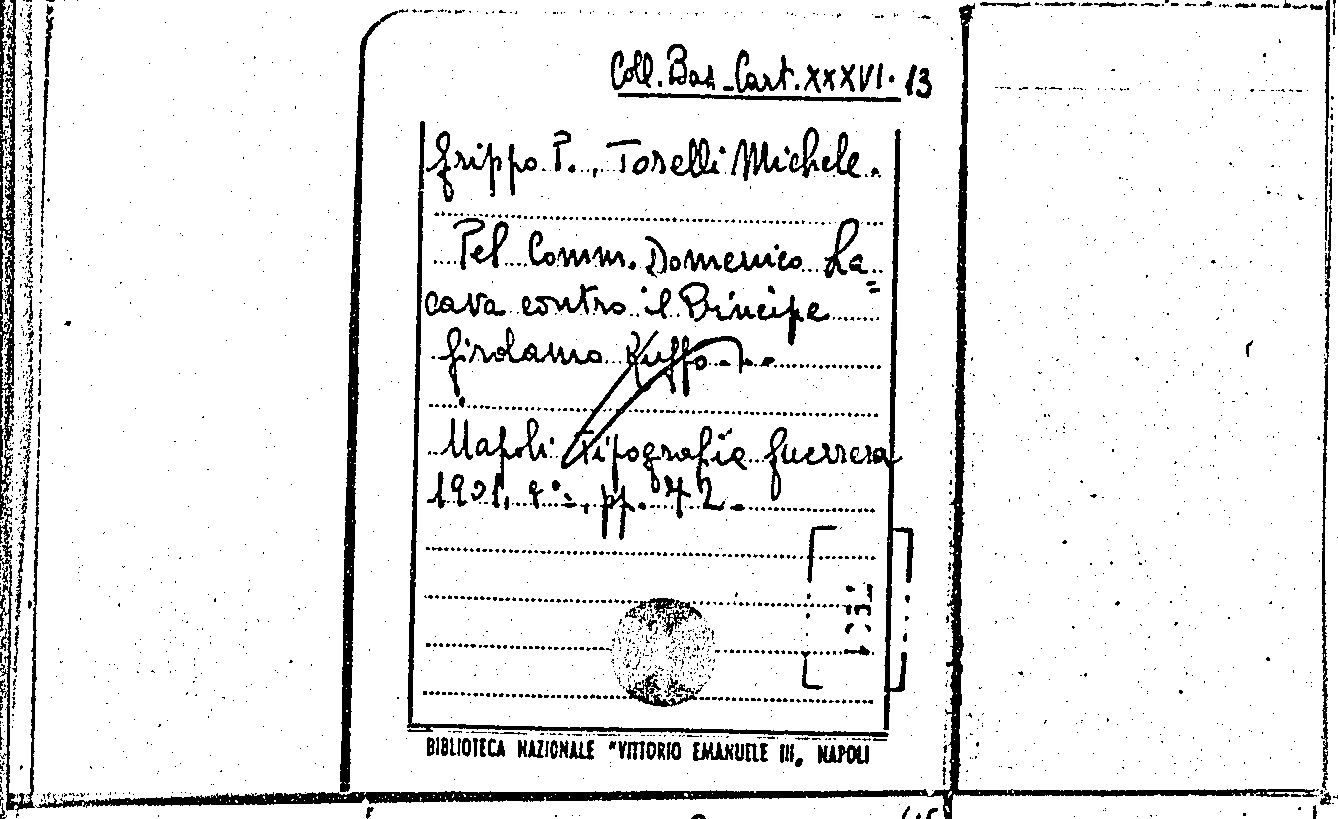 Coll. Bas - Cart. XXXVI. 13
Grippo P., Torelli Michele.
Pel Comm. Domenico La=
cava contro il Principe
Girolamo Ruffo...
Napoli Tipografia Guerrera
1901, 4°, pp. 42.
BIBLIOTECA NAZIONALE "VITTORIO EMANUELE III" NAPOLI